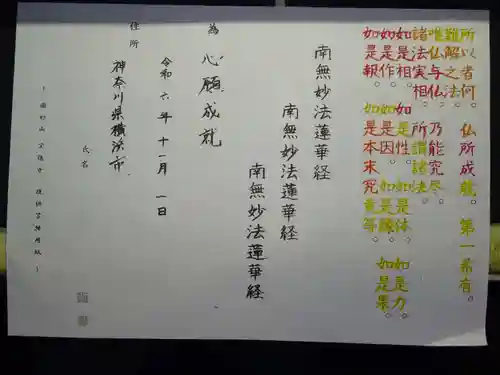 所以者何　仏所成就。第一希有。
難解之法。
唯仏与仏　乃能究尽。
諸法実相。所謂諸法。
如是相。如是性。如是体。如是力。
如是作。如是因。如是縁。如是果。
如是報。如是本末究竟等。
南無妙法蓮華経
南無妙法蓮華経
南無妙法蓮華経
為　心願成就
令和六年十一月一日
住所　神奈川県横浜市
氏名